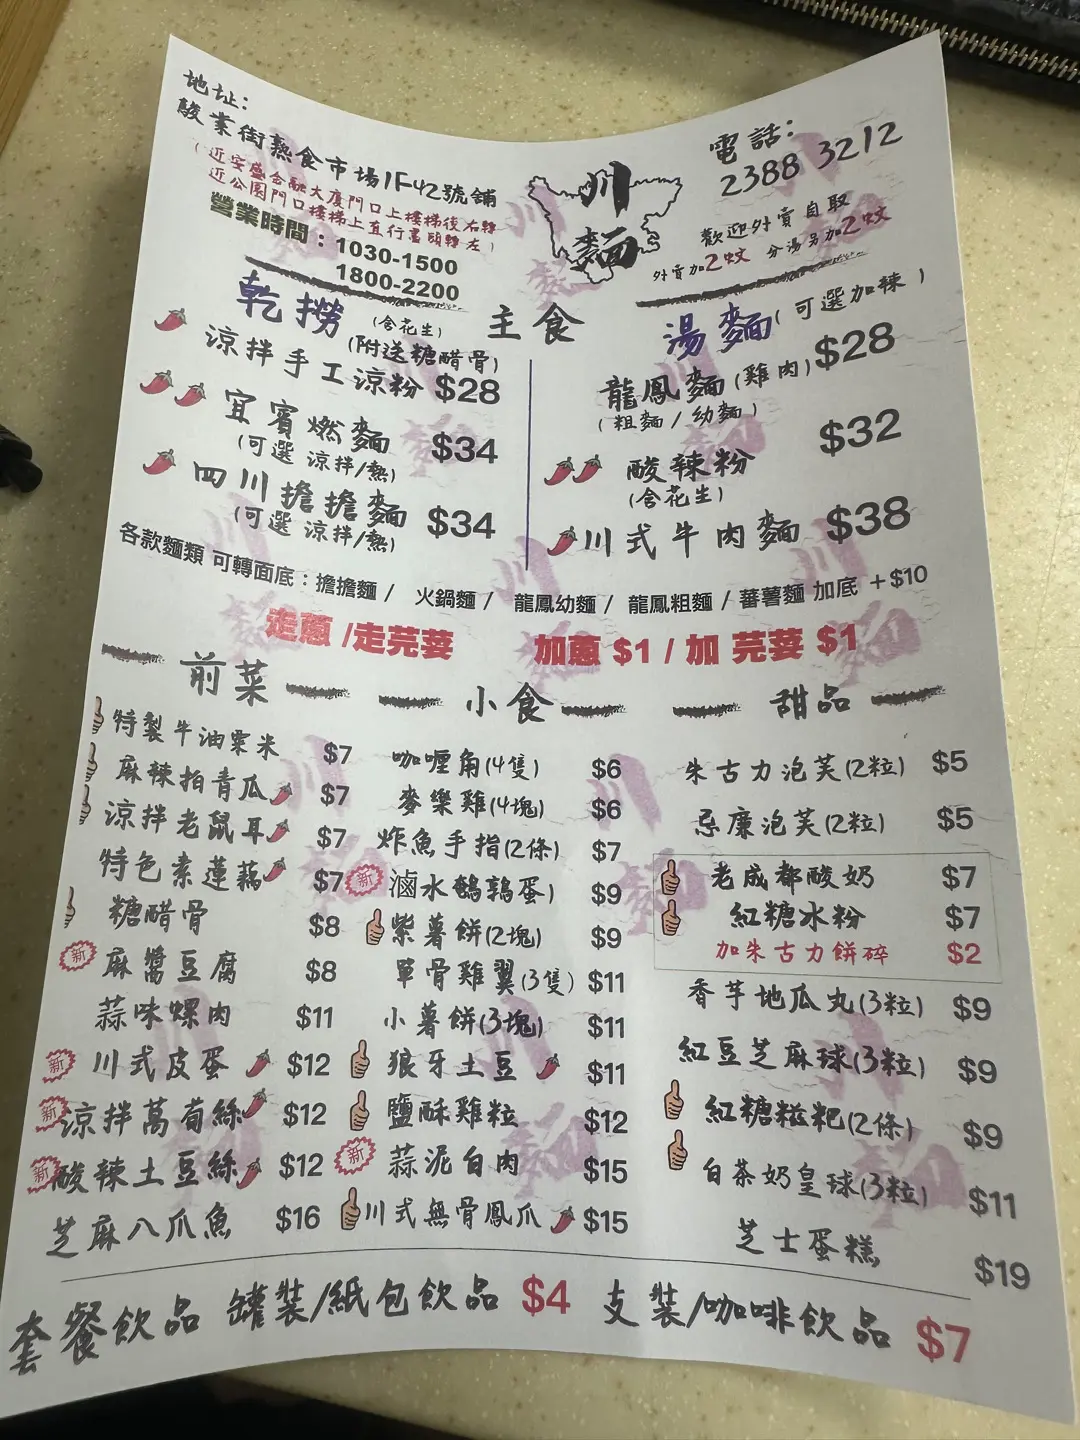 地址：
駿業街熟食市場1F42號舖
（近安盛金融大廈門口上樓梯後右轉
近公園門口樓梯上直行盡頭轉左）
營業時間：1030-1500
1800-2200
川
麵
電話：
2388 3212
歡迎外賣自取
外賣加2蚊 分湯另加2蚊
主食
乾撈 (含花生)
(附送糖醋骨)
涼拌手工涼粉 $28
宜賓燃麵 $34
(可選 涼拌/熱)
四川擔擔麵 $34
(可選 涼拌/熱)
湯麵 (可選加辣)
龍鳳麵(雞肉) $28
(粗麵/幼麵)
酸辣粉 $32
(含花生)
川式牛肉麵 $38
各款麵類 可轉面底：擔擔麵 / 火鍋麵 / 龍鳳幼麵 / 龍鳳粗麵 / 蕃薯麵 加底 +$10
走蔥 /走芫荽 加蔥 $1 / 加 芫荽 $1
前菜
特製牛油粟米 $7
麻辣拍青瓜 $7
涼拌老鼠耳 $7
特色素蓮藕 $7
糖醋骨 $8
新 麻醬豆腐 $8
蒜味螺肉 $11
新 川式皮蛋 $12
新 涼拌萵荀絲 $12
新 酸辣土豆絲 $12
芝麻八爪魚 $16
小食
咖喱角(4隻) $6
麥樂雞(4塊) $6
炸魚手指(2條) $7
新 滷水鵪鶉蛋) $9
紫薯餅(2塊) $9
單骨雞翼(3隻) $11
小薯餅(3塊) $11
狼牙土豆 $11
鹽酥雞粒 $12
新 蒜泥白肉 $15
川式無骨鳳爪 $15
甜品
朱古力泡芙(2粒) $5
忌廉泡芙(2粒) $5
老成都酸奶 $7
紅糖冰粉 $7
加朱古力餅碎 $2
香芋地瓜丸(3粒) $9
紅豆芝麻球(3粒) $9
紅糖糍粑(2條) $9
白茶奶皇球(3粒) $11
芝士蛋糕 $19
套餐飲品 罐裝/紙包飲品 $4 支裝/咖啡飲品 $7